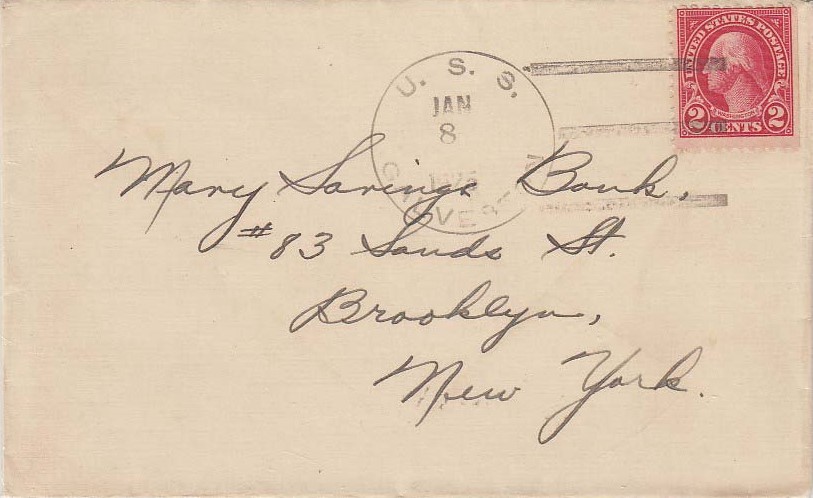 UNITED STATES POSTAGE
WASHINGTON
2 CENTS 2
U. S. S.
JAN
8
GALVESTON
Navy Savings Bank,
#83 Sands St.
Brooklyn,
New York.